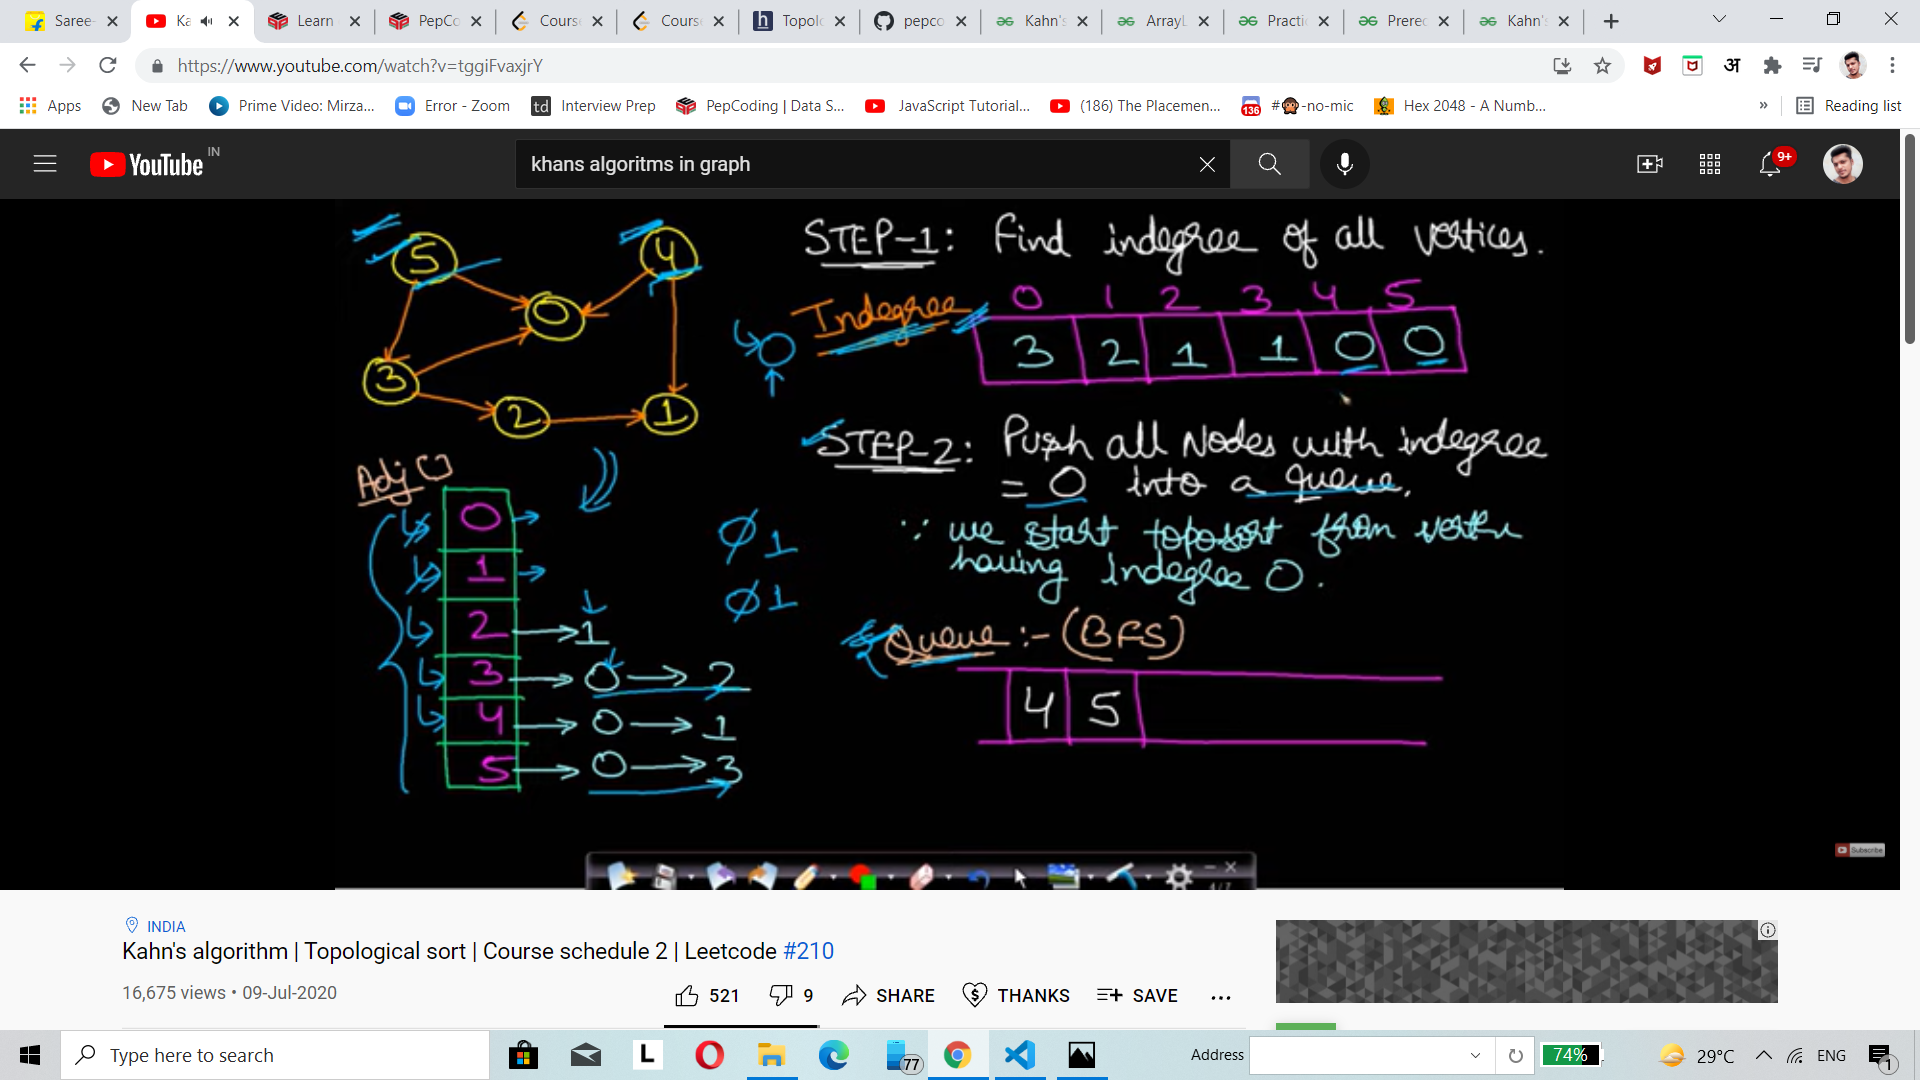 Saree-
Ka
Learn
PepCo
Course
Course
Topolo
pepco
Kahn's
ArrayL
Practic
Prereq
Kahn's
https://www.youtube.com/watch?v=tggiFvaxjrY
Apps
New Tab
Prime Video: Mirza...
Error - Zoom
td Interview Prep
PepCoding | Data S...
JavaScript Tutorial...
(186) The Placemen...
136 #🙊-no-mic
Hex 2048 - A Numb...
»
Reading list
YouTube IN
khans algoritms in graph
9+
5
4
0
3
2
1
STEP-1: Find indegree of all vertices.
Indegree
0 1 2 3 4 5
3 2 1 1 0 0
STEP-2: Push all Nodes with indegree
= 0 into a queue.
∵ we start toposort from vertex
having indegree 0.
Adj[]
0 →
1 →
2 → 1
3 → 0 → 2
4 → 0 → 1
5 → 0 → 3
0 1
0 1
Queue :- (BFS)
4 5
Subscribe
INDIA
Kahn's algorithm | Topological sort | Course schedule 2 | Leetcode #210
16,675 views • 09-Jul-2020
521
9
SHARE
THANKS
SAVE
...
Type here to search
L
77
Address
74%
29°C
ENG
1